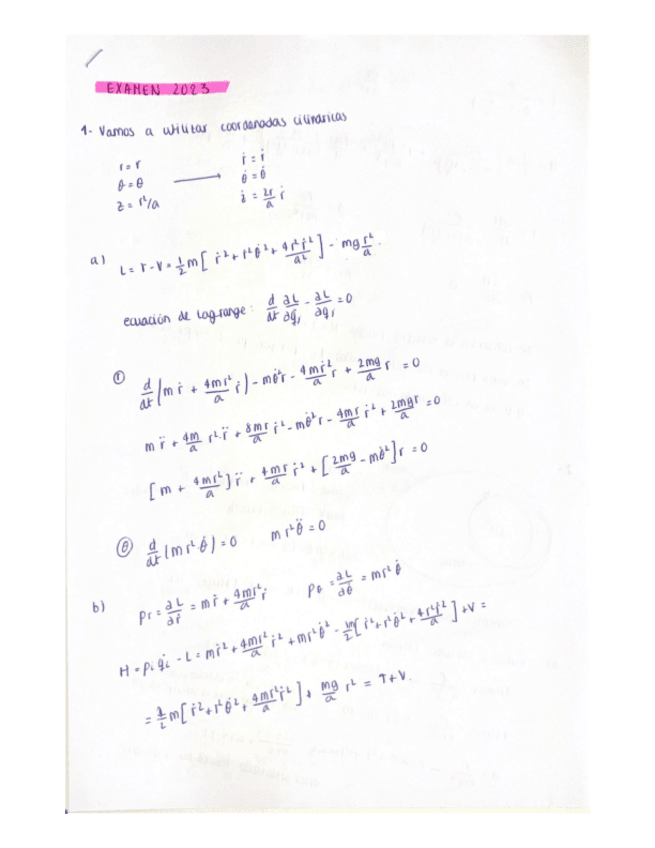 EXAMEN 2023
1- Vamos a utilizar coordenadas cilíndricas
r = r → ṙ = ṙ
θ = θ θ̇ = θ̇
z = r²/a ż = 2r/a ṙ
a) L = T - V = 1/2 m [ ṙ² + r²θ̇² + 4r²ṙ²/a² ] - mg r²/a.
ecuación de Lagrange: d/dt ∂L/∂q̇ⱼ - ∂L/∂qⱼ = 0
① d/dt ( m ṙ + 4mr²/a ṙ ) - mθ̇²r - 4mṙ²/a r + 2mg/a r = 0
m r̈ + 4m/a r² r̈ + 8mr/a ṙ² - mθ̇²r - 4mr/a ṙ² + 2mgr/a = 0
[ m + 4mr²/a ] r̈ + 4mr/a ṙ² + [ 2mg/a - mθ̇² ] r = 0
ⓞ d/dt ( m r² θ̇ ) = 0 m r² θ̈ = 0
b) pr = ∂L/∂ṙ = mṙ + 4mr²/a ṙ pθ = ∂L/∂θ̇ = mr² θ̇
H = pᵢ q̇ᵢ - L = mṙ² + 4mr²/a ṙ² + mr²θ̇² - m/2 [ ṙ² + r²θ̇² + 4r²ṙ²/a ] + V =
= 1/2 m [ ṙ² + r²θ̇² + 4mr²ṙ²/a ] + mg/a r² = T + V.